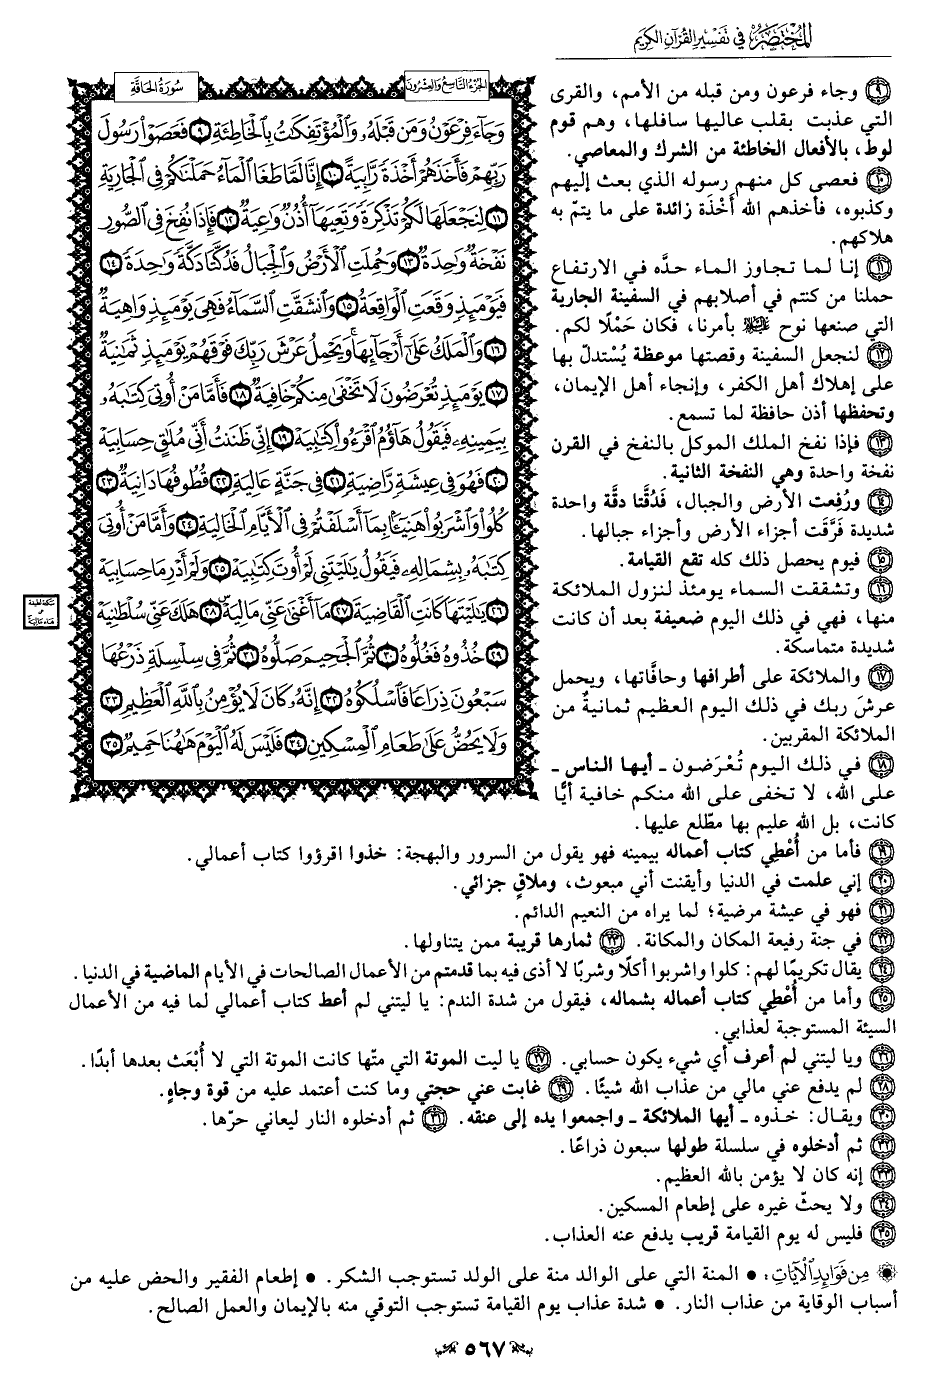 المختصر في تفسير القرآن الكريم
الجزء التاسع والعشرون
سورة الحاقة
وَجَآءَ فِرْعَوْنُ وَمَن قَبْلَهُۥ وَٱلْمُؤْتَفِكَٰتُ بِٱلْخَاطِئَةِ ٩ فَعَصَوْا۟ رَسُولَ
رَبِّهِمْ فَأَخَذَهُمْ أَخْذَةً رَّابِيَةً ١٠ إِنَّا لَمَّا طَغَا ٱلْمَآءُ حَمَلْنَٰكُمْ فِى ٱلْجَارِيَةِ
١١ لِنَجْعَلَهَا لَكُمْ تَذْكِرَةً وَتَعِيَهَآ أُذُنٌ وَٰعِيَةٌ ١٢ فَإِذَا نُفِخَ فِى ٱلصُّورِ
نَفْخَةٌ وَٰحِدَةٌ ١٣ وَحُمِلَتِ ٱلْأَرْضُ وَٱلْجِبَالُ فَدُكَّتَا دَكَّةً وَٰحِدَةً ١٤
فَيَوْمَئِذٍ وَقَعَتِ ٱلْوَاقِعَةُ ١٥ وَٱنشَقَّتِ ٱلسَّمَآءُ فَهِىَ يَوْمَئِذٍ وَاهِيَةٌ
١٦ وَٱلْمَلَكُ عَلَىٰٓ أَرْجَآئِهَا وَيَحْمِلُ عَرْشَ رَبِّكَ فَوْقَهُمْ يَوْمَئِذٍ ثَمَٰنِيَةٌ
١٧ يَوْمَئِذٍ تُعْرَضُونَ لَا تَخْفَىٰ مِنكُمْ خَافِيَةٌ ١٨ فَأَمَّا مَنْ أُوتِىَ كِتَٰبَهُۥ
بِيَمِينِهِۦ فَيَقُولُ هَآؤُمُ ٱقْرَءُوا۟ كِتَٰبِيَهْ ١٩ إِنِّى ظَنَنتُ أَنِّى مُلَٰقٍ حِسَابِيَهْ
٢٠ فَهُوَ فِى عِيشَةٍ رَّاضِيَةٍ ٢١ فِى جَنَّةٍ عَالِيَةٍ ٢٢ قُطُوفُهَا دَانِيَةٌ ٢٣
كُلُوا۟ وَٱشْرَبُوا۟ هَنِيٓـًٔۢا بِمَآ أَسْلَفْتُمْ فِى ٱلْأَيَّامِ ٱلْخَالِيَةِ ٢٤ وَأَمَّا مَنْ أُوتِىَ
كِتَٰبَهُۥ بِشِمَالِهِۦ فَيَقُولُ يَٰلَيْتَنِى لَمْ أُوتَ كِتَٰبِيَهْ ٢٥ وَلَمْ أَدْرِ مَا حِسَابِيَهْ
٢٦ يَٰلَيْتَهَا كَانَتِ ٱلْقَاضِيَةَ ٢٧ مَآ أَغْنَىٰ عَنِّى مَالِيَهْ ٢٨ هَلَكَ عَنِّى سُلْطَٰنِيَهْ
٢٩ خُذُوهُ فَغُلُّوهُ ٣٠ ثُمَّ ٱلْجَحِيمَ صَلُّوهُ ٣١ ثُمَّ فِى سِلْسِلَةٍ ذَرْعُهَا
سَبْعُونَ ذِرَاعًا فَٱسْلُكُوهُ ٣٢ إِنَّهُۥ كَانَ لَا يُؤْمِنُ بِٱللَّهِ ٱلْعَظِيمِ ٣٣
وَلَا يَحُضُّ عَلَىٰ طَعَامِ ٱلْمِسْكِينِ ٣٤ فَلَيْسَ لَهُ ٱلْيَوْمَ هَٰهُنَا حَمِيمٌ ٣٥
٩ وجاء فرعون ومن قبله من الأمم، والقرى
التي عذبت بقلب عاليها سافلها، وهم قوم
لوط، بالأفعال الخاطئة من الشرك والمعاصي.
١٠ فعصى كل منهم رسوله الذي بعث إليهم
وكذبوه، فأخذهم الله أَخْذَة زائدة على ما يتمّ به
هلاكهم.
١١ إنا لما تجاوز الماء حدَّه في الارتفاع
حملنا من كنتم في أصلابهم في السفينة الجارية
التي صنعها نوح عليه السلام بأمرنا، فكان حَمْلًا لكم.
١٢ لنجعل السفينة وقصتها موعظة يُستدلّ بها
على إهلاك أهل الكفر، وإنجاء أهل الإيمان،
وتحفظها أذن حافظة لما تسمع.
١٣ فإذا نفخ الملك الموكل بالنفخ في القرن
نفخة واحدة وهي النفخة الثانية.
١٤ ورُفِعت الأرض والجبال، فَدُقَّتا دقَّة واحدة
شديدة فَرَّقَت أجزاء الأرض وأجزاء جبالها.
١٥ فيوم يحصل ذلك كله تقع القيامة.
١٦ وتشققت السماء يومئذ لنزول الملائكة
منها، فهي في ذلك اليوم ضعيفة بعد أن كانت
شديدة متماسكة.
١٧ والملائكة على أطرافها وحافَّاتها، ويحمل
عرشَ ربك في ذلك اليوم العظيم ثمانيةٌ من
الملائكة المقربين.
١٨ في ذلك اليوم تُعْرَضون ـ أيها الناس ـ
على الله، لا تخفى على الله منكم خافية أيًّا
كانت، بل الله عليم بها مطّلع عليها.
١٩ فأما من أُعْطِي كتاب أعماله بيمينه فهو يقول من السرور والبهجة: خذوا اقرؤوا كتاب أعمالي.
٢٠ إني علمت في الدنيا وأيقنت أني مبعوث، وملاقٍ جزائي.
٢١ فهو في عيشة مرضية؛ لما يراه من النعيم الدائم.
٢٢ في جنة رفيعة المكان والمكانة. ٢٣ ثمارها قريبة ممن يتناولها.
٢٤ يقال تكريمًا لهم: كلوا واشربوا أكلًا وشربًا لا أذى فيه بما قدمتم من الأعمال الصالحات في الأيام الماضية في الدنيا.
٢٥ وأما من أُعْطِي كتاب أعماله بشماله، فيقول من شدة الندم: يا ليتني لم أعط كتاب أعمالي لما فيه من الأعمال
السيئة المستوجبة لعذابي.
٢٦ ويا ليتني لم أعرف أي شيء يكون حسابي. ٢٧ يا ليت الموتة التي متّها كانت الموتة التي لا أُبْعَث بعدها أبدًا.
٢٨ لم يدفع عني مالي من عذاب الله شيئًا. ٢٩ غابت عني حجتي وما كنت أعتمد عليه من قوة وجاهٍ.
٣٠ ويقال: خذوه ـ أيها الملائكة ـ واجمعوا يده إلى عنقه. ٣١ ثم أدخلوه النار ليعاني حرّها.
٣٢ ثم أدخلوه في سلسلة طولها سبعون ذراعًا.
٣٣ إنه كان لا يؤمن بالله العظيم.
٣٤ ولا يحثّ غيره على إطعام المسكين.
٣٥ فليس له يوم القيامة قريب يدفع عنه العذاب.
من فوائد الآيات: • المنة التي على الوالد منة على الولد تستوجب الشكر. • إطعام الفقير والحض عليه من
أسباب الوقاية من عذاب النار. • شدة عذاب يوم القيامة تستوجب التوقي منه بالإيمان والعمل الصالح.
٥٦٧